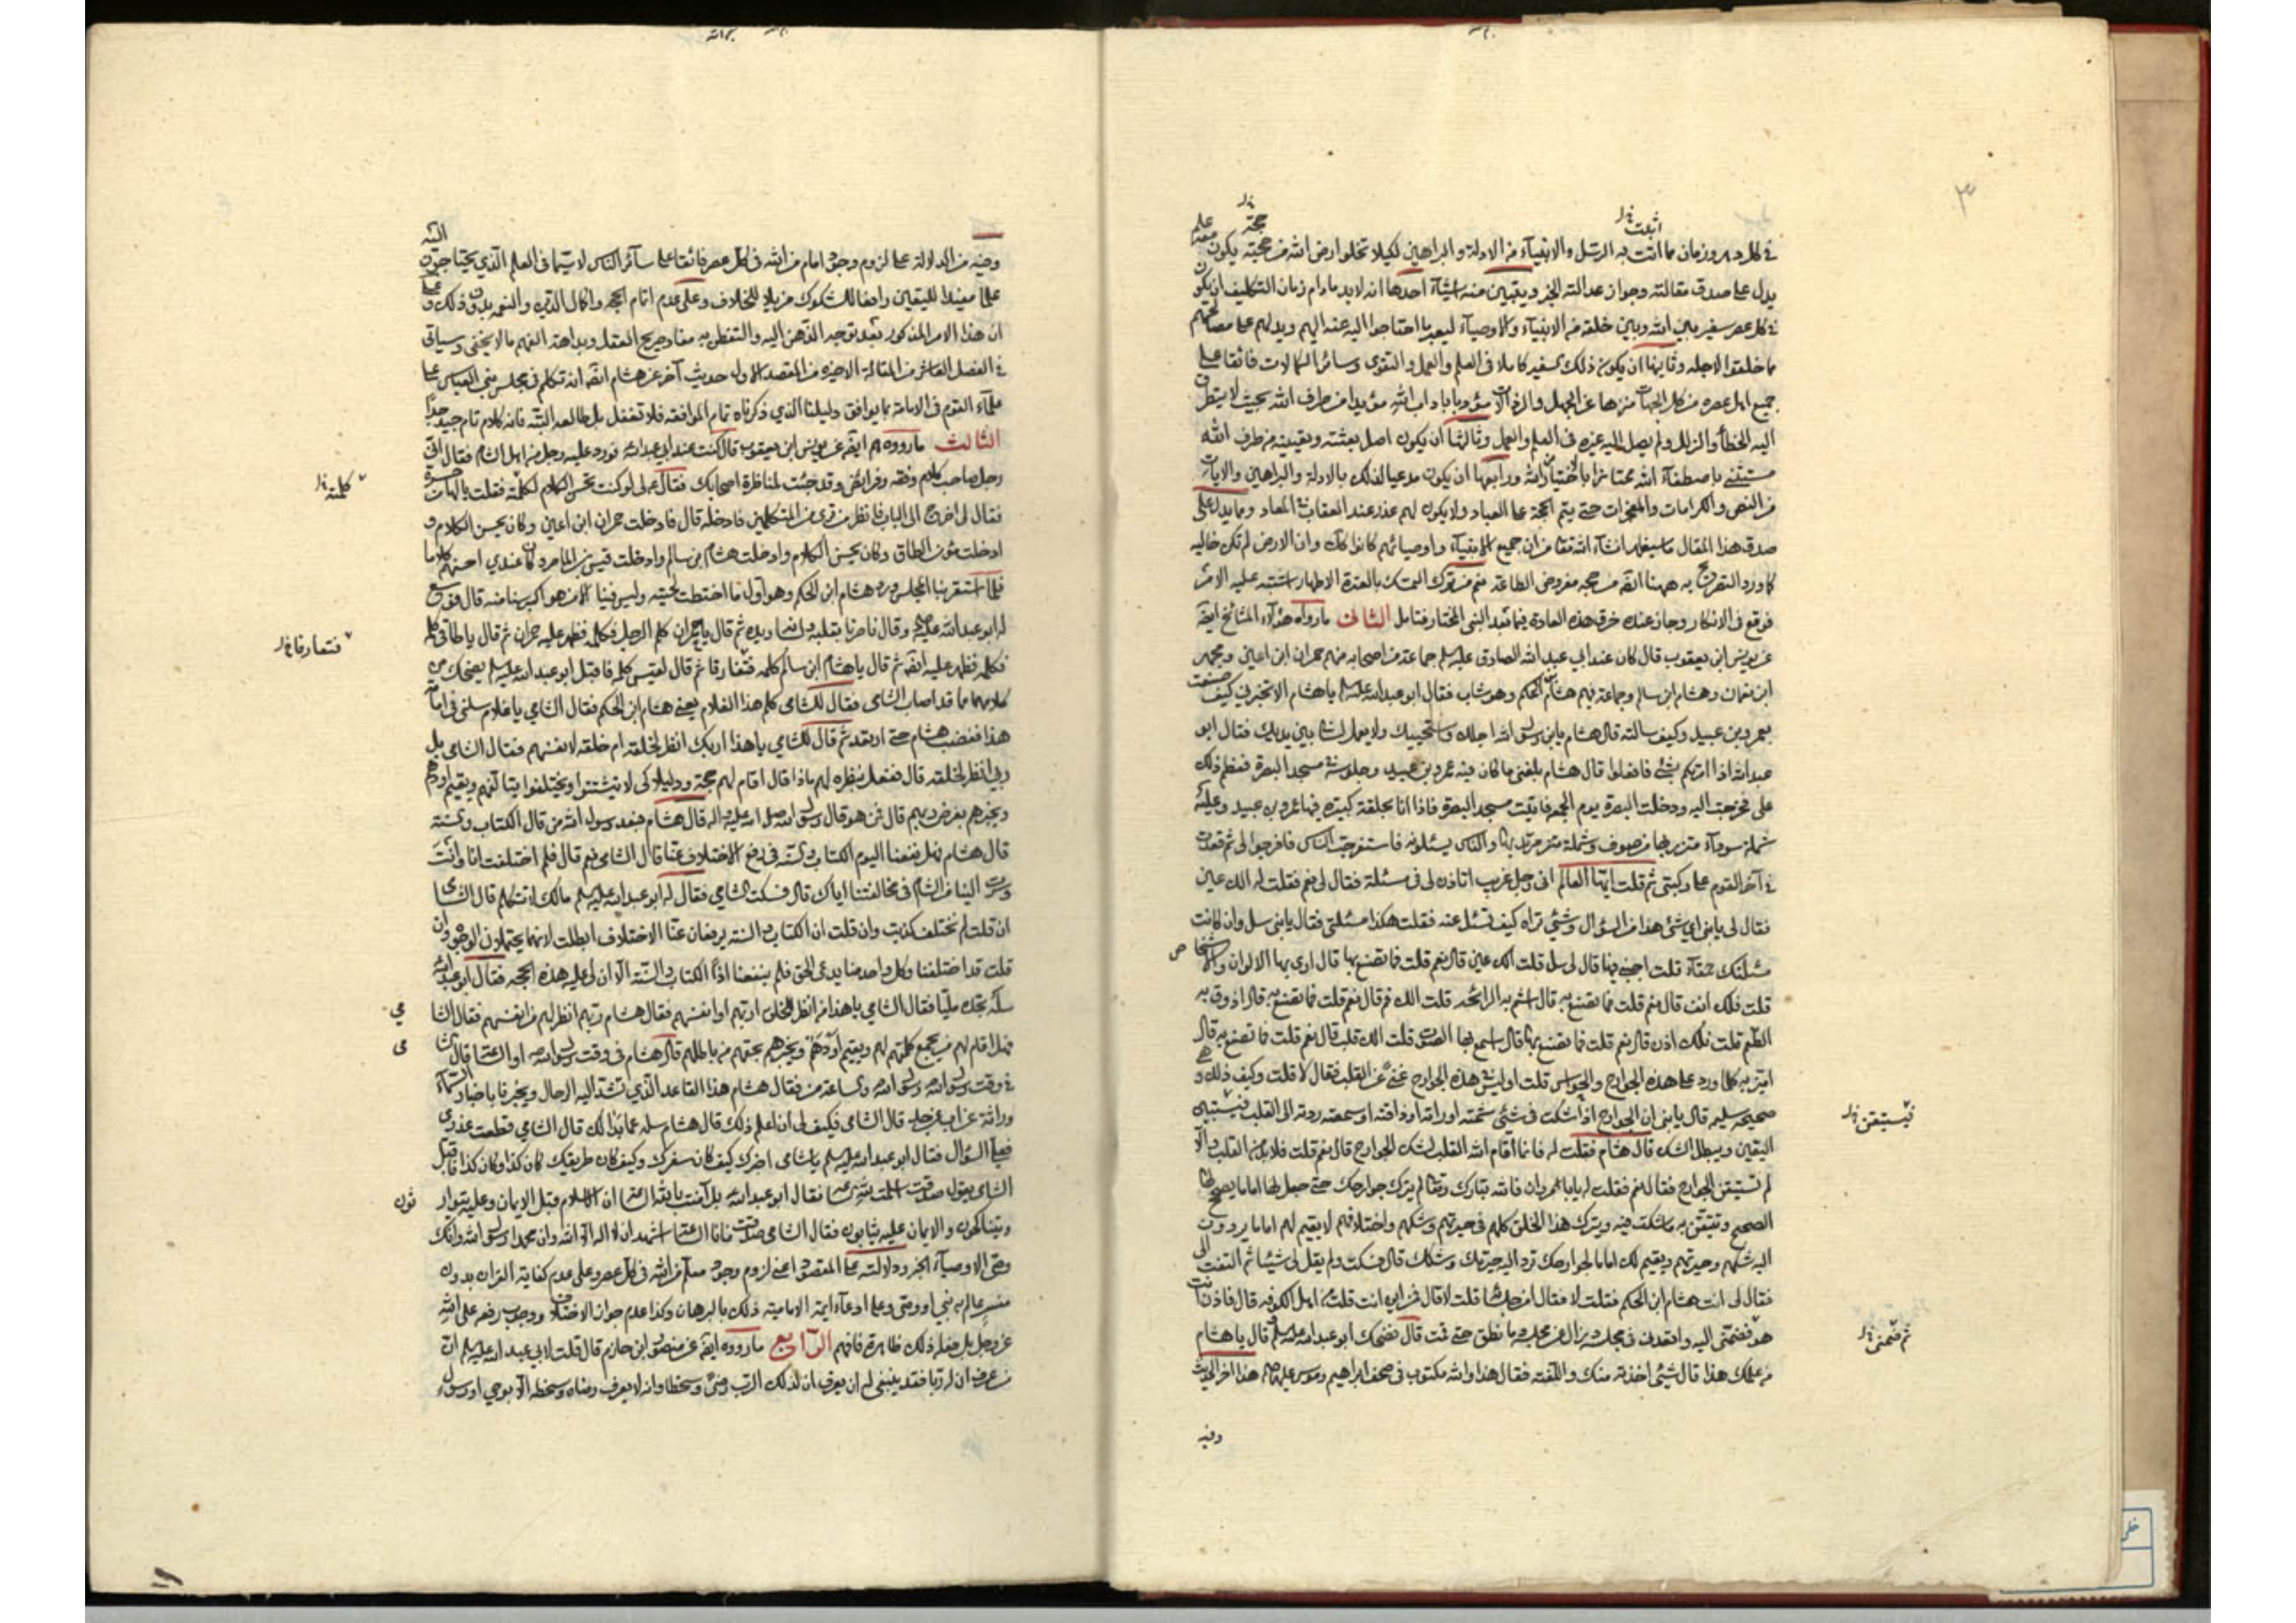 ٣
اثبتت خ‌ل
حجة خ‌ل
في كل دهر وزمان ما اتت به الرسل والانبياء من الادلة والبراهين لكيلا تخلوا ارض الله من حجته يكون معه علم
يدل على صدق مقالته وجواز عدالته الخبر ويتبين منه اشياء احدها انه لابد مادام زمان التكليف ان يكون
في كل عصر سفير بين الله وبين خلقه من الانبياء والاوصياء ليعبر ما احتاجوا اليه عنه اليهم ويدلهم على مصالحهم
ما خلقوا لاجله وثانيها ان يكون ذلك السفير كاملا في العلم والعمل والتقوى وسائر الكمالات فائقا على
جميع اهل عصره من كل الجهات منزها عن الجهل والرذالات مؤدبا باداب الله مؤيدا من طرف الله بحيث لا يتطرق
اليه الخطأ والزلل ولم يصل اليه غيره في العلم والعمل وثالثا ان يكون اصل بعثته وتعيينه من طرف الله
باصطفاء الله ممتازا باختيار الله ورابعها ان يكون مدعيا لذلك بالادلة والبراهين والايات
من النص والكرامات والمعجزات حتى يتم الحجة على العباد ولا يكون لهم عذر عند العقاب في المعاد ومما يدل على
صدق هذا المقال ما سيظهر انشاء الله تعالى من ان جميع الانبياء واوصيائهم كانوا كك وان الارض لم تكن خالية
كما ورد التصريح به ههنا ايضا من حجة مفروض الطاعة فمن ترك التمسك بالعترة الاطهار اشتبه عليه الامر
فوقع في الانكار وجاز عنده خرق هذه العادة فيما بعد النبي المختار فتامل الثاني ما رواه هؤلاء المشايخ ايضا
عن يونس ابن يعقوب قال كان عند ابي عبد الله الصادق عليه السلام جماعة من اصحابه منهم حمران ابن اعين ومحمد
ابن نعمان وهشام ابن سالم وجماعة فيهم هشام بن الحكم وهو شاب فقال ابو عبد الله عليه السلام يا هشام الا تخبرني كيف صنعت
بعمرو بن عبيد وكيف سالته قال هشام يابن رسول الله اجلك واستحييك ولا يعمل لساني بين يديك فقال ابو
عبد الله اذا امرتكم بشيء فافعلوا قال هشام بلغني ما كان فيه عمرو بن عبيد وجلوسه في مسجد البصرة فعظم ذلك
على فخرجت اليه ودخلت البصرة يوم الجمعة فاتيت مسجد البصرة فاذا انا بحلقة كبيرة فيها عمرو بن عبيد وعليه
شملة سوداء متزر بها من صوف وشملة مرتد بها والناس يسئلونه فاستفرجت الناس فافرجوا لي ثم قعدت
في آخر القوم على ركبتي ثم قلت ايها العالم اني رجل غريب اتاذن لي في مسئلة فقال لي نعم فقلت له الك عين
فقال لي يا بني اي شيء هذا من السؤال وشيء تراه كيف تسئل عنه فقلت هكذا مسئلتي فقال يا بني سل وان كانت
مسئلتك حمقاء قلت اجبني فيها قال لي سل قلت الك عين قال نعم قلت فما تصنع بها قال ارى بها الالوان والاشخاص
قلت فلك انف قال نعم قلت فما تصنع به قال اشم به الرائحة قلت الك فم قال نعم قلت فما تصنع به قال اذوق به
الطعم قلت فلك اذن قال نعم قلت فما تصنع بها قال اسمع بها الصوت قلت الك قلب قال نعم قلت فما تصنع به قال
اميز به كلما ورد على هذه الجوارح والحواس قلت اوليس في هذه الجوارح غنى عن القلب فقال لا قلت وكيف ذلك وهي
صحيحة سليمة قال يا بني ان الجوارح اذا شكت في شيء شمته او راته او ذاقته او سمعته ردته الى القلب فيستبين
فيستيقن خ‌ل
اليقين ويبطل الشك قال هشام فقلت له فانما اقام الله القلب لشك الجوارح قال نعم قلت فلا بد من القلب والا
لم تستيقن الجوارح فقال نعم فقلت له يا با مروان فالله تبارك وتعالى لم يترك جوارحك حتى جعل لها اماما يصحح لها
الصحيح وتتيقن به ما شكت فيه ويترك هذا الخلق كلهم في حيرتهم وشكهم واختلافهم لا يقيم لهم اماما يردون
اليه شكهم وحيرتهم ويقيم لك اماما لجوارحك ترد اليه حيرتك وشكك قال فسكت ولم يقل لي شيئا ثم التفت الى
فقال لي انت هشام ابن الحكم فقلت لا فقال امن جلسائه قلت لا قال فمن اين انت قلت من اهل الكوفة قال فاذن انت
هو فضمني اليه واقعدني في مجلسه وزال عن مجلسه وما نطق حتى قمت قال فضحك ابو عبد الله عليه السلام وقال يا هشام
ثم ضمني خ‌ل
من علمك هذا قال شيء اخذته منك والفته فقال هذا والله مكتوب في صحف ابراهيم وموسى عليهما السلام هذا اخر الحديث
وفيه
وفيه من الدلالة على لزوم وجود امام من الله في كل عصر فائقا على سائر الناس لا سيما في العلم الذي يحتاجون اليه
علما مفيدا لليقين رافعا للشكوك مزيلا للخلاف وعلى عدم اتمام الحجة واكمال الدين والنعمة بدون ذلك وعلى
ان هذا الامر المذكور بعد توجه الذهن اليه والتفطن به مفاد صريح العقل وبداهة الفهم ما لا يخفى وسياتي
في الفصل العاشر من المقالة الاخيرة من المقصد الاول حديث آخر عن هشام ايضا انه تكلم في مجلس بني العباس على
علماء القوم في الامامة بما يوافق دليلنا الذي ذكرناه تمام الموافقة فلا تغفل بل طالعه البتة فانه كلام تام جيد جدا
الثالث ما رووه هم ايضا عن يونس ابن يعقوب قال كنت عند ابي عبد الله فورد عليه رجل من اهل الشام فقال اني
رجل صاحب كلام وفقه وفرائض وقد جئت لمناظرة اصحابك فقال لي لو كنت تحسن الكلام لكلمته فقلت يا لها من حسرة
كلمته خ‌ل
فقال لي اخرج الى الباب فانظر من ترى من المتكلمين فادخله قال فادخلت حمران ابن اعين وكان يحسن الكلام و
ادخلت مؤمن الطاق وكان يحسن الكلام وادخلت هشام بن سالم وادخلت قيس بن الماصر وكان عندي احسنهم كلاما
فلما استقر بنا المجلس ورد هشام ابن الحكم وهو اول ما اختطت لحيته وليس فينا الا من هو اكبر سنا منه قال فوسع
له ابو عبد الله عليه السلام وقال ناصرنا بقلبه ولسانه ويده ثم قال يا حمران كلم الرجل فكلمه فظهر عليه حمران ثم قال يا طاقي كلمه
فكلمه فظهر عليه ايضا ثم قال يا هشام ابن سالم كلمه فتفارقا ثم قال لقيس كلمه فاقبل ابو عبد الله عليه السلام يضحك من
فتعارفا خ‌ل
كلامهما مما قد اصاب الشامي فقال للشامي كلم هذا الغلام يعني هشام ابن الحكم فقال الشامي يا غلام سلني في امامة
هذا فغضب هشام حتى ارتعد ثم قال للشامي يا هذا اربك انظر لخلقه ام خلقه لانفسهم فقال الشامي بل
ربي انظر لخلقه قال ففعل بنظره لهم ماذا قال اقام لهم حجة ودليلا كي لا يتشتتوا ويختلفوا يتالفهم ويقيم اودهم
ويخبرهم بفرض ربهم قال فمن هو قال رسول الله صلى الله عليه واله قال هشام فبعد رسول الله من قال الكتاب والسنة
قال هشام فهل ينفعنا اليوم الكتاب والسنة في رفع الاختلاف عنا قال الشامي نعم قال فلم اختلفت انا وانت
وصرت الينا من الشام في مخالفتنا اياك قال فسكت الشامي فقال له ابو عبد الله عليه السلام مالك لا تتكلم قال الشامي
ان قلت لم نختلف كذبت وان قلت ان الكتاب والسنة يرفعان عنا الاختلاف ابطلت لانهما يحتملان الوجوه وان
قلت قد اختلفنا وكل واحد منا يدعي الحق فلم ينفعنا اذا الكتاب والسنة الا ان لي عليه هذه الحجة فقال ابو عبد الله
سله تجده مليا فقال الشامي يا هذا من انظر للخلق اربهم او انفسهم فقال هشام ربهم انظر لهم من انفسهم فقال الشامي
فهل اقام لهم من يجمع كلمتهم لهم ويقيم اودهم ويخبرهم بحقهم من باطلهم قال هشام في وقت رسول الله او الساعة قال الشامي
في وقت رسول الله رسول الله والساعة من فقال هشام هذا القاعد الذي تشد اليه الرحال ويخبرنا باخبار السماء
وراثة عن اب عن جد قال الشامي فكيف لي ان اعلم ذلك قال هشام سله عما بدا لك قال الشامي قطعت عذري
فعلي السؤال فقال ابو عبد الله عليه السلام يا شامي اخبرك كيف كان سفرك وكيف كان طريقك كان كذا وكان كذا فاقبل
الشامي يقول صدقت اسلمت لله الساعة فقال ابو عبد الله بل آمنت بالله الساعة ان الاسلام قبل الايمان وعليه يتوارثون
ويتناكحون والايمان عليه يثابون فقال الشامي صدقت فانا الساعة اشهد ان لا اله الا الله وان محمدا رسول الله وانك
وصي الاوصياء الخبر ودلالته على المقصود اعني لزوم وجود معلم من الله في كل عصر وعلى عدم كفاية القران بدون
مفسر عالم به نبي او وصي وعلى ادعاء ائمة الامامية ذلك بالبرهان وكذا عدم جواز الاختلاف ووجوب رفعه على الله
عز وجل بل فعله ذلك ظاهرة فافهم الرابع ما رووه ايضا عن منصور ابن حازم قال قلت لابي عبد الله عليه السلام ان
من عرف ان له ربا فقد ينبغي له ان يعرف ان لذلك الرب رضى وسخطا وانه لا يعرف رضاه وسخطه الا بوحي او رسول